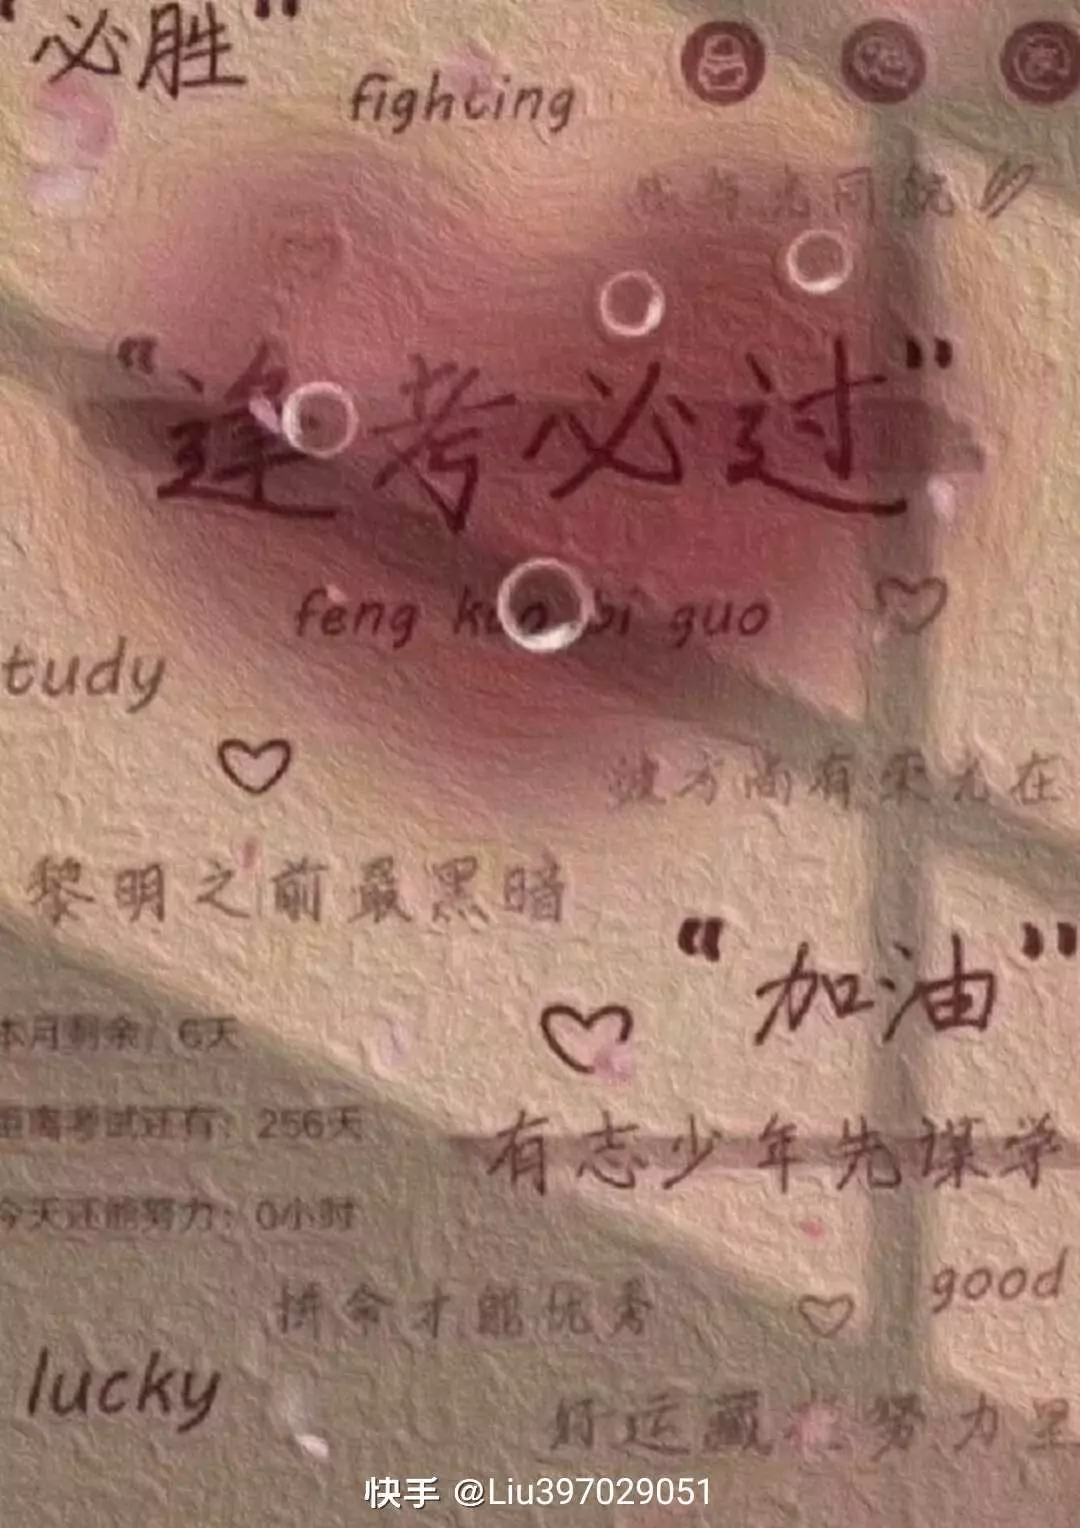 “必胜”
fighting
与光同航
“逢考必过”
feng kao bi guo
tudy
彼方尚有荣光在
黎明之前最黑暗
“加油”
本月剩余：6天
距离考试还有：256天
有志少年先谋学
今天还能努力：0小时
good
拼命才能优秀
lucky
好运藏在努力里
快手 @Liu397029051